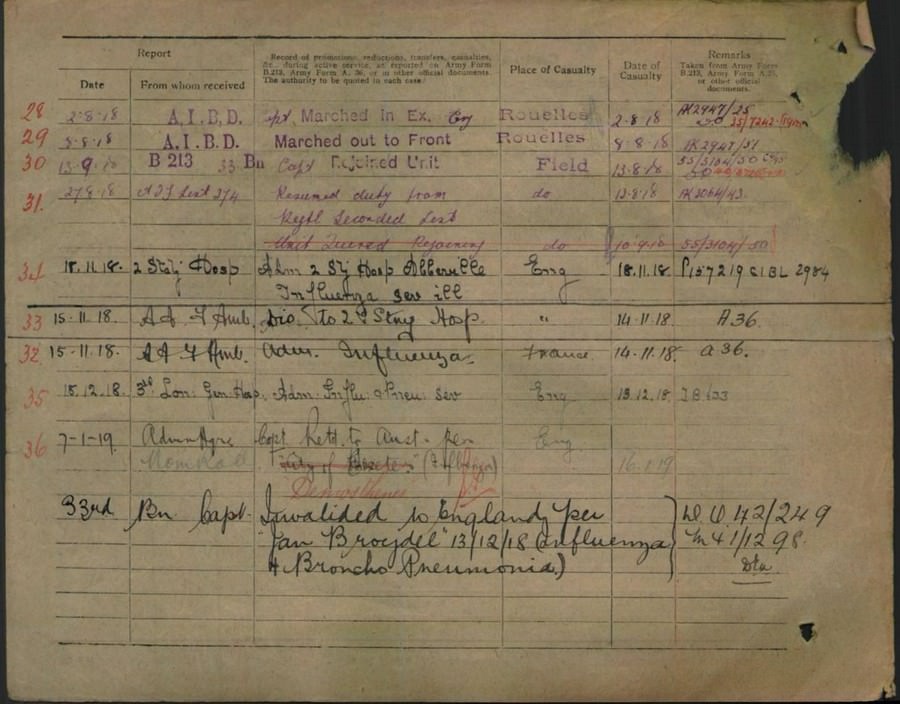 Report
Record of promotions, reductions, transfers, casualties, &c., during active service, as reported on Army Form B.213, Army Form A. 36, or in other official documents. The authority to be quoted in each case.
Place of Casualty
Date of Casualty
Remarks
Taken from Army Form B.213, Army Form A.36, or other official documents.
Date From whom received
28 2-8-18 A.I.B.D. Marched in Ex. Eng Rouelles 2-8-18 AK2947/25
29 8-8-18 A.I.B.D. Marched out to Front Rouelles 8-8-18 AK2947/51
30 13-9-18 B 213 33 Bn Capt Rejoined Unit Field 13-8-18 55/3104/50
31. 27-8-18 List 274 Resumed duty from do 13-8-18 AK3064/43.
Regtl Seconded List
Rejoining do 10-9-18 55/3104/50
34 18.11.18. 2 Staty Hosp Adm 2 Sty Hosp Abbeville Eng 18.11.18 P157219 C1BL 2984
Influenza sev ill
33 15-11-18. A A F Amb. Dis. To 2nd Stny Hosp. " 14-11-18. A36.
32 15-11-18. A A F Amb. Adm. Influenza. France. 14-11-18. A36.
35 15.12.18. 3rd Lon: Gen Hosp. Adm: Influ: & Pneu: Sev Eng 13.12.18
36 7-1-19 Admn Hqrs Capt. Retd. to Aust. per Eng
"City of Exeter" (Influenza) 16.1.19
Demosthenes
33rd Bn Capt. Invalided to England per
"Jan Breydel" 13/12/18 (Influenza
& Broncho Pneumonia)
W.O.42/249
M41/1298.